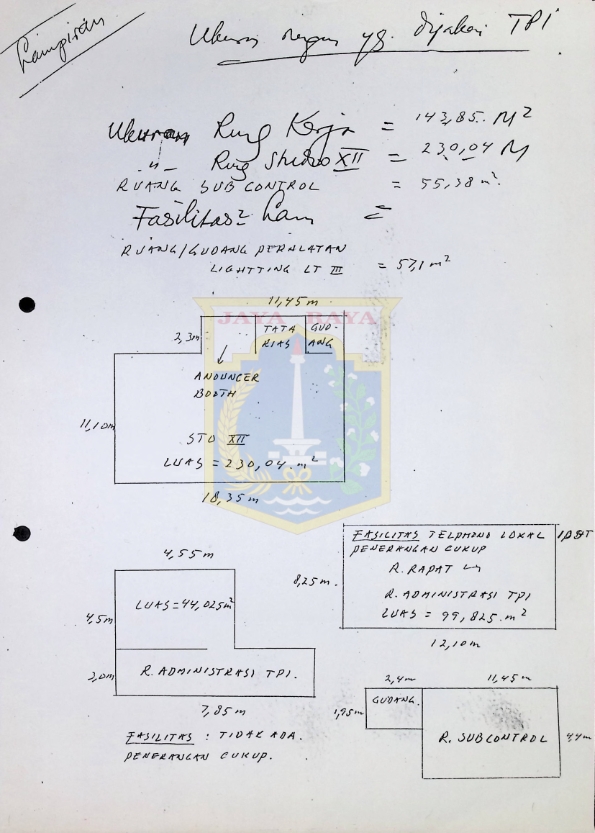 Lampiran
Ukuran ruangan yg. dipakai TPI
Ukuran Ruang Kerja = 143,85. M2
-"- Ruang Studio XII = 230,04 M
RUANG SUB CONTROL = 55,38 m2.
Fasilitas2 Lain =
RUANG/GUDANG PERALATAN
LIGHTTING LT III = 57,1 m2
11,45 m
JAYA RAYA
2,3m
TATA RIAS
GUD-ANG
ANOUNCER
BOOTH
11,10m
STO XII
LUAS = 230,04. m2
18,35 m
FASILITAS TELPHONO LOKAL
PENERANGAN CUKUP
8,25 m.
R. RAPAT
R. ADMINISTRASI TPI
LUAS = 99,825. m2
12,10 m
4,55 m
LUAS = 44,025m2
4,5m
3,0m
R. ADMINISTRASI TPI.
7,85 m
FASILITAS : TIDAK ADA.
PENERANGAN CUKUP.
2,4m
11,45 m
GUDANG.
1,95m
R. SUBCONTROL
4,4m